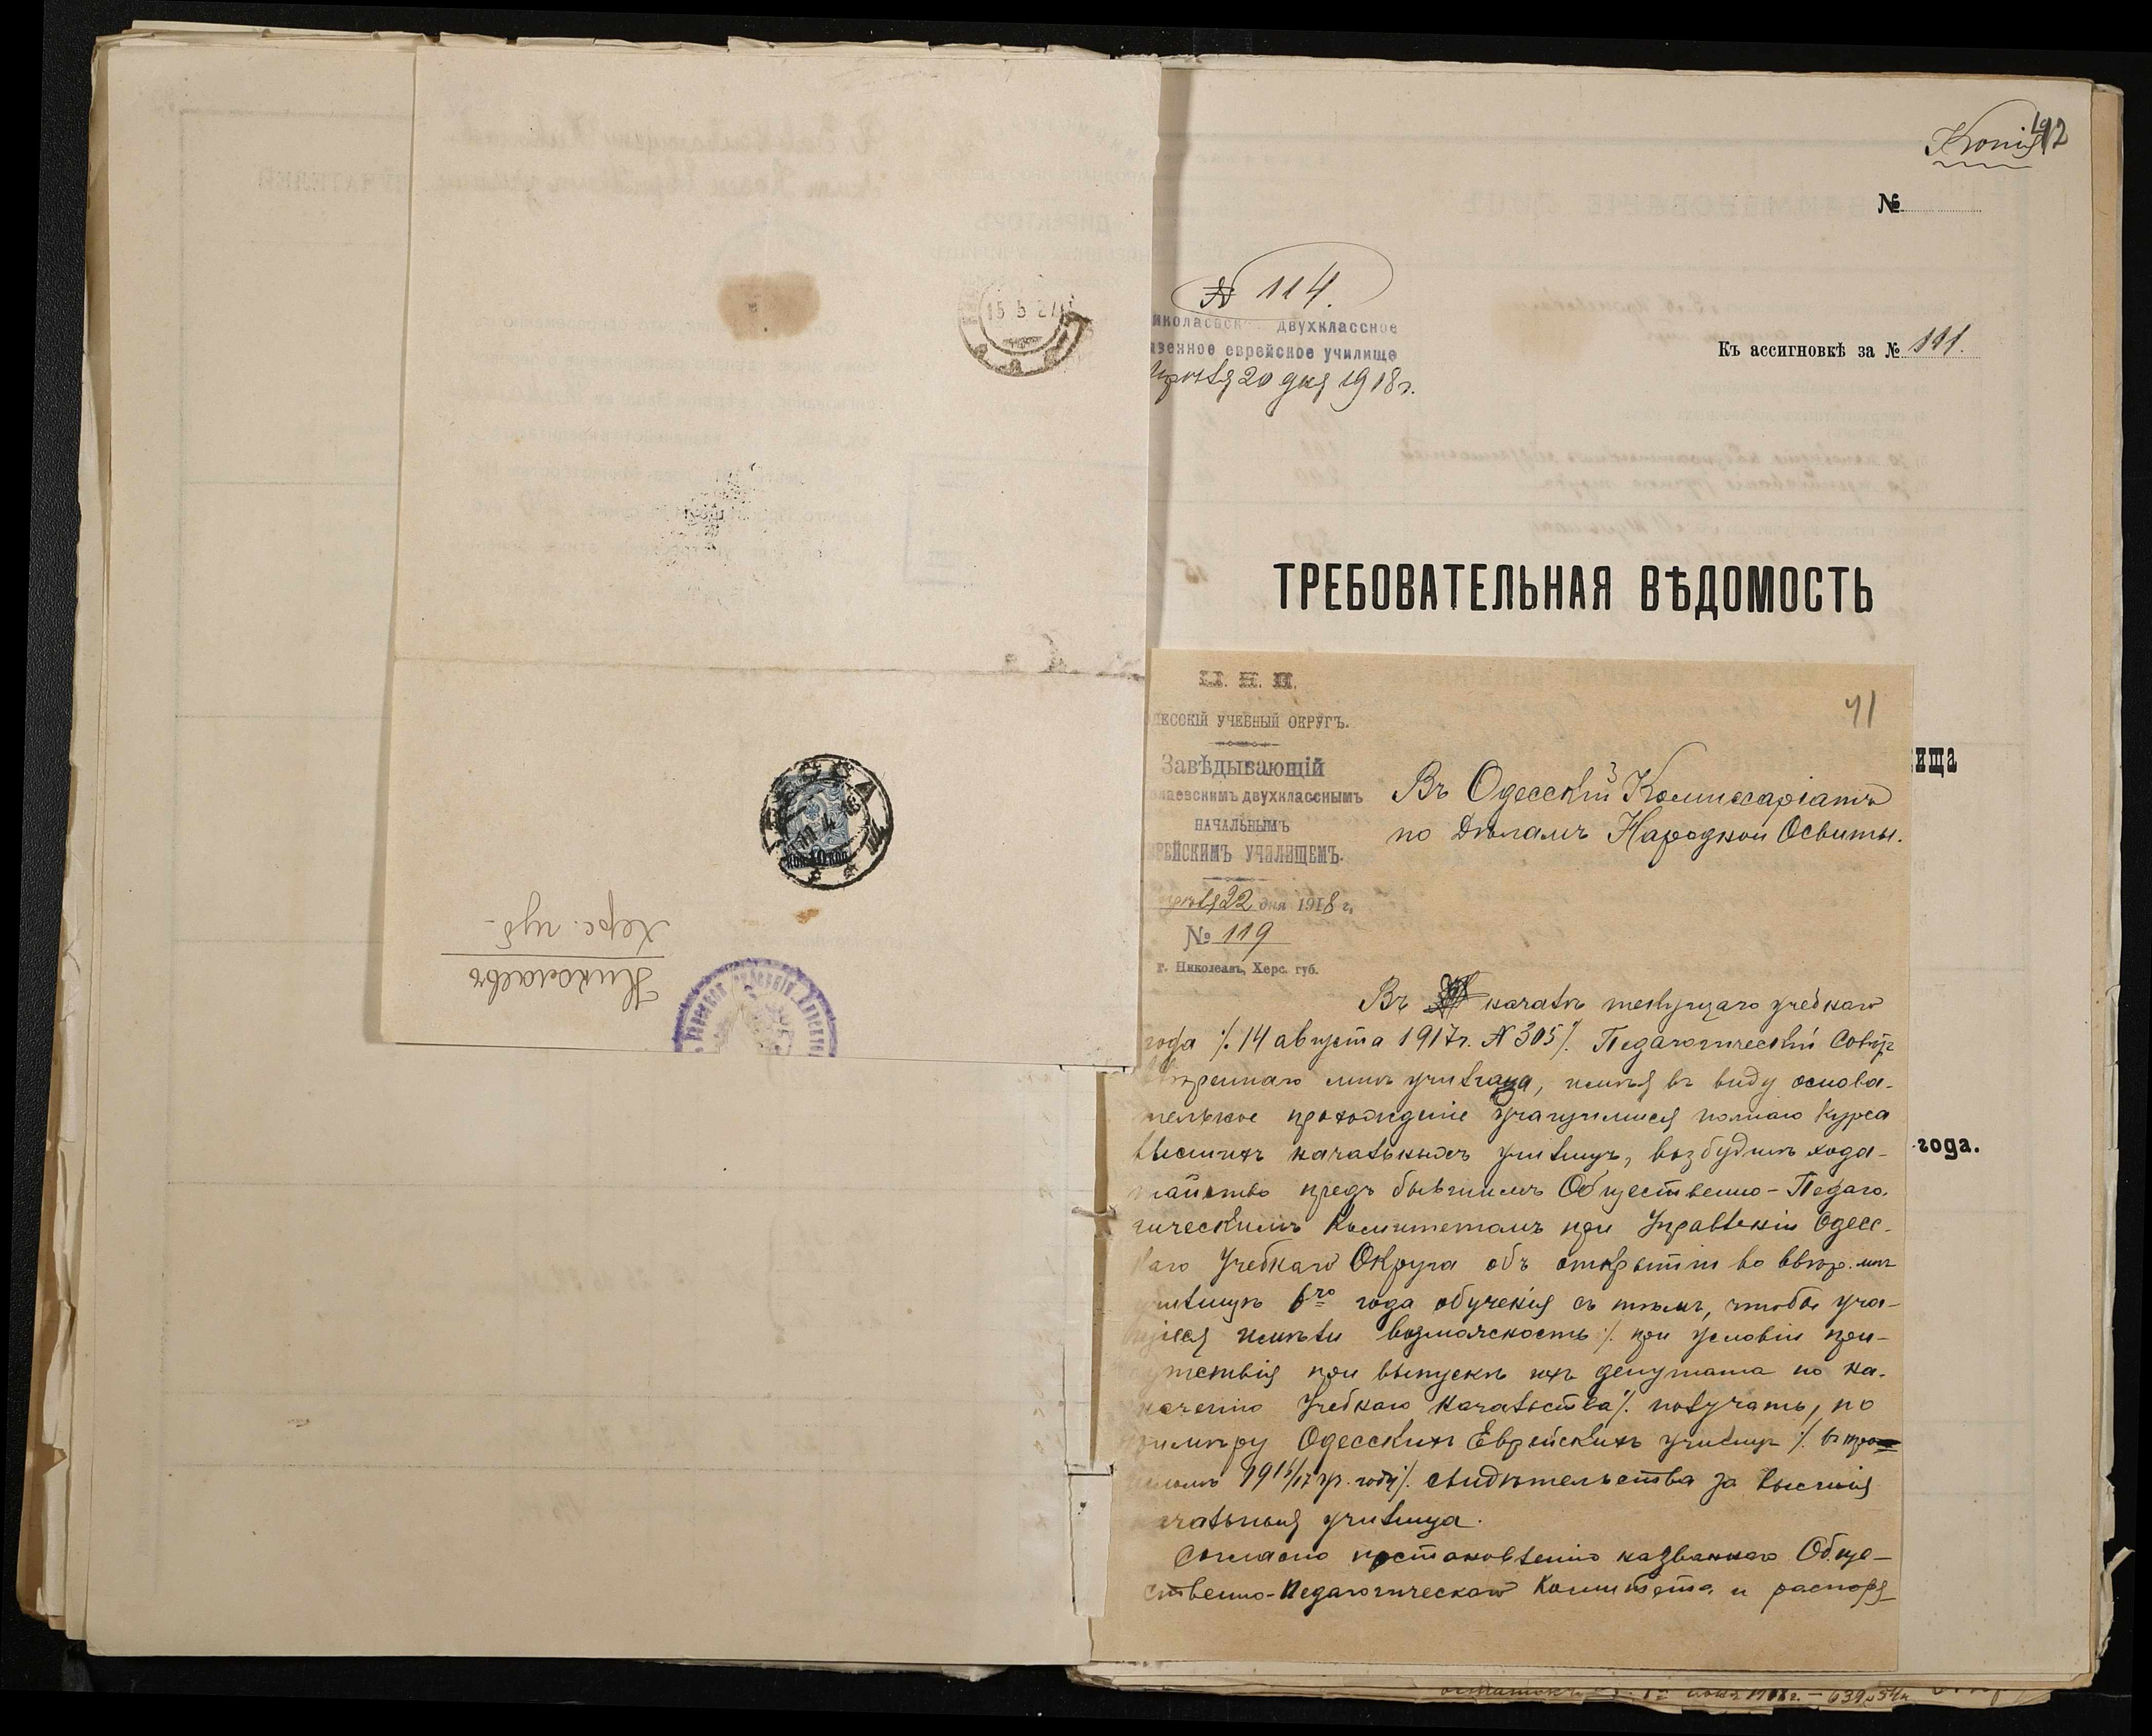 Копія
42
№
№ 114.
двухклассное
еврейское училище
20 дня 1918 г.
Къ ассигновкѣ за № 111.
ТРЕБОВАТЕЛЬНАЯ ВѢДОМОСТЬ
41
УЧЕБНЫЙ ОКРУГЪ.
Завѣдывающій
двухкласснымъ
НАЧАЛЬНЫМЪ
УЧИЛИЩЕМЪ.
22 дня 1918 г.
№ 119
г. Николаевъ, Херс. губ.
Въ Одесскій Комиссаріатъ
по Дѣламъ Народной Освиты.
Въ началѣ текущаго учебнаго
года ·/. 14 августа 1917 г. № 305 ·/. Педагогическій Совѣтъ
ввѣреннаго мнѣ училища, имѣя въ виду основа-
тельное прохожденіе учащимися полнаго курса
высшихъ начальныхъ училищъ, возбудилъ хода-
тайство предъ бывшимъ Общественно-Педаго-
гическимъ Комитетомъ при Управленіи Одесс-
каго Учебнаго Округа объ открытіи во ввѣр. мнѣ
училищѣ 6го года обученія съ тѣмъ, чтобы уча-
щіеся имѣли возможность ·/. при условіи при-
сутствія при выпускѣ ихъ депутата по на-
значенію Учебнаго Начальства ·/. получать, по
примѣру Одесскихъ Еврейскихъ училищъ ·/. въ про-
шломъ 1916/17 гр. году ·/. свидѣтельства за высшія
начальныя училища.
Согласно постановленію названнаго Обще-
ственно-Педагогическаго Комитета и распоря-
ища
года.
Николаевъ
Херс. губ.
15 5